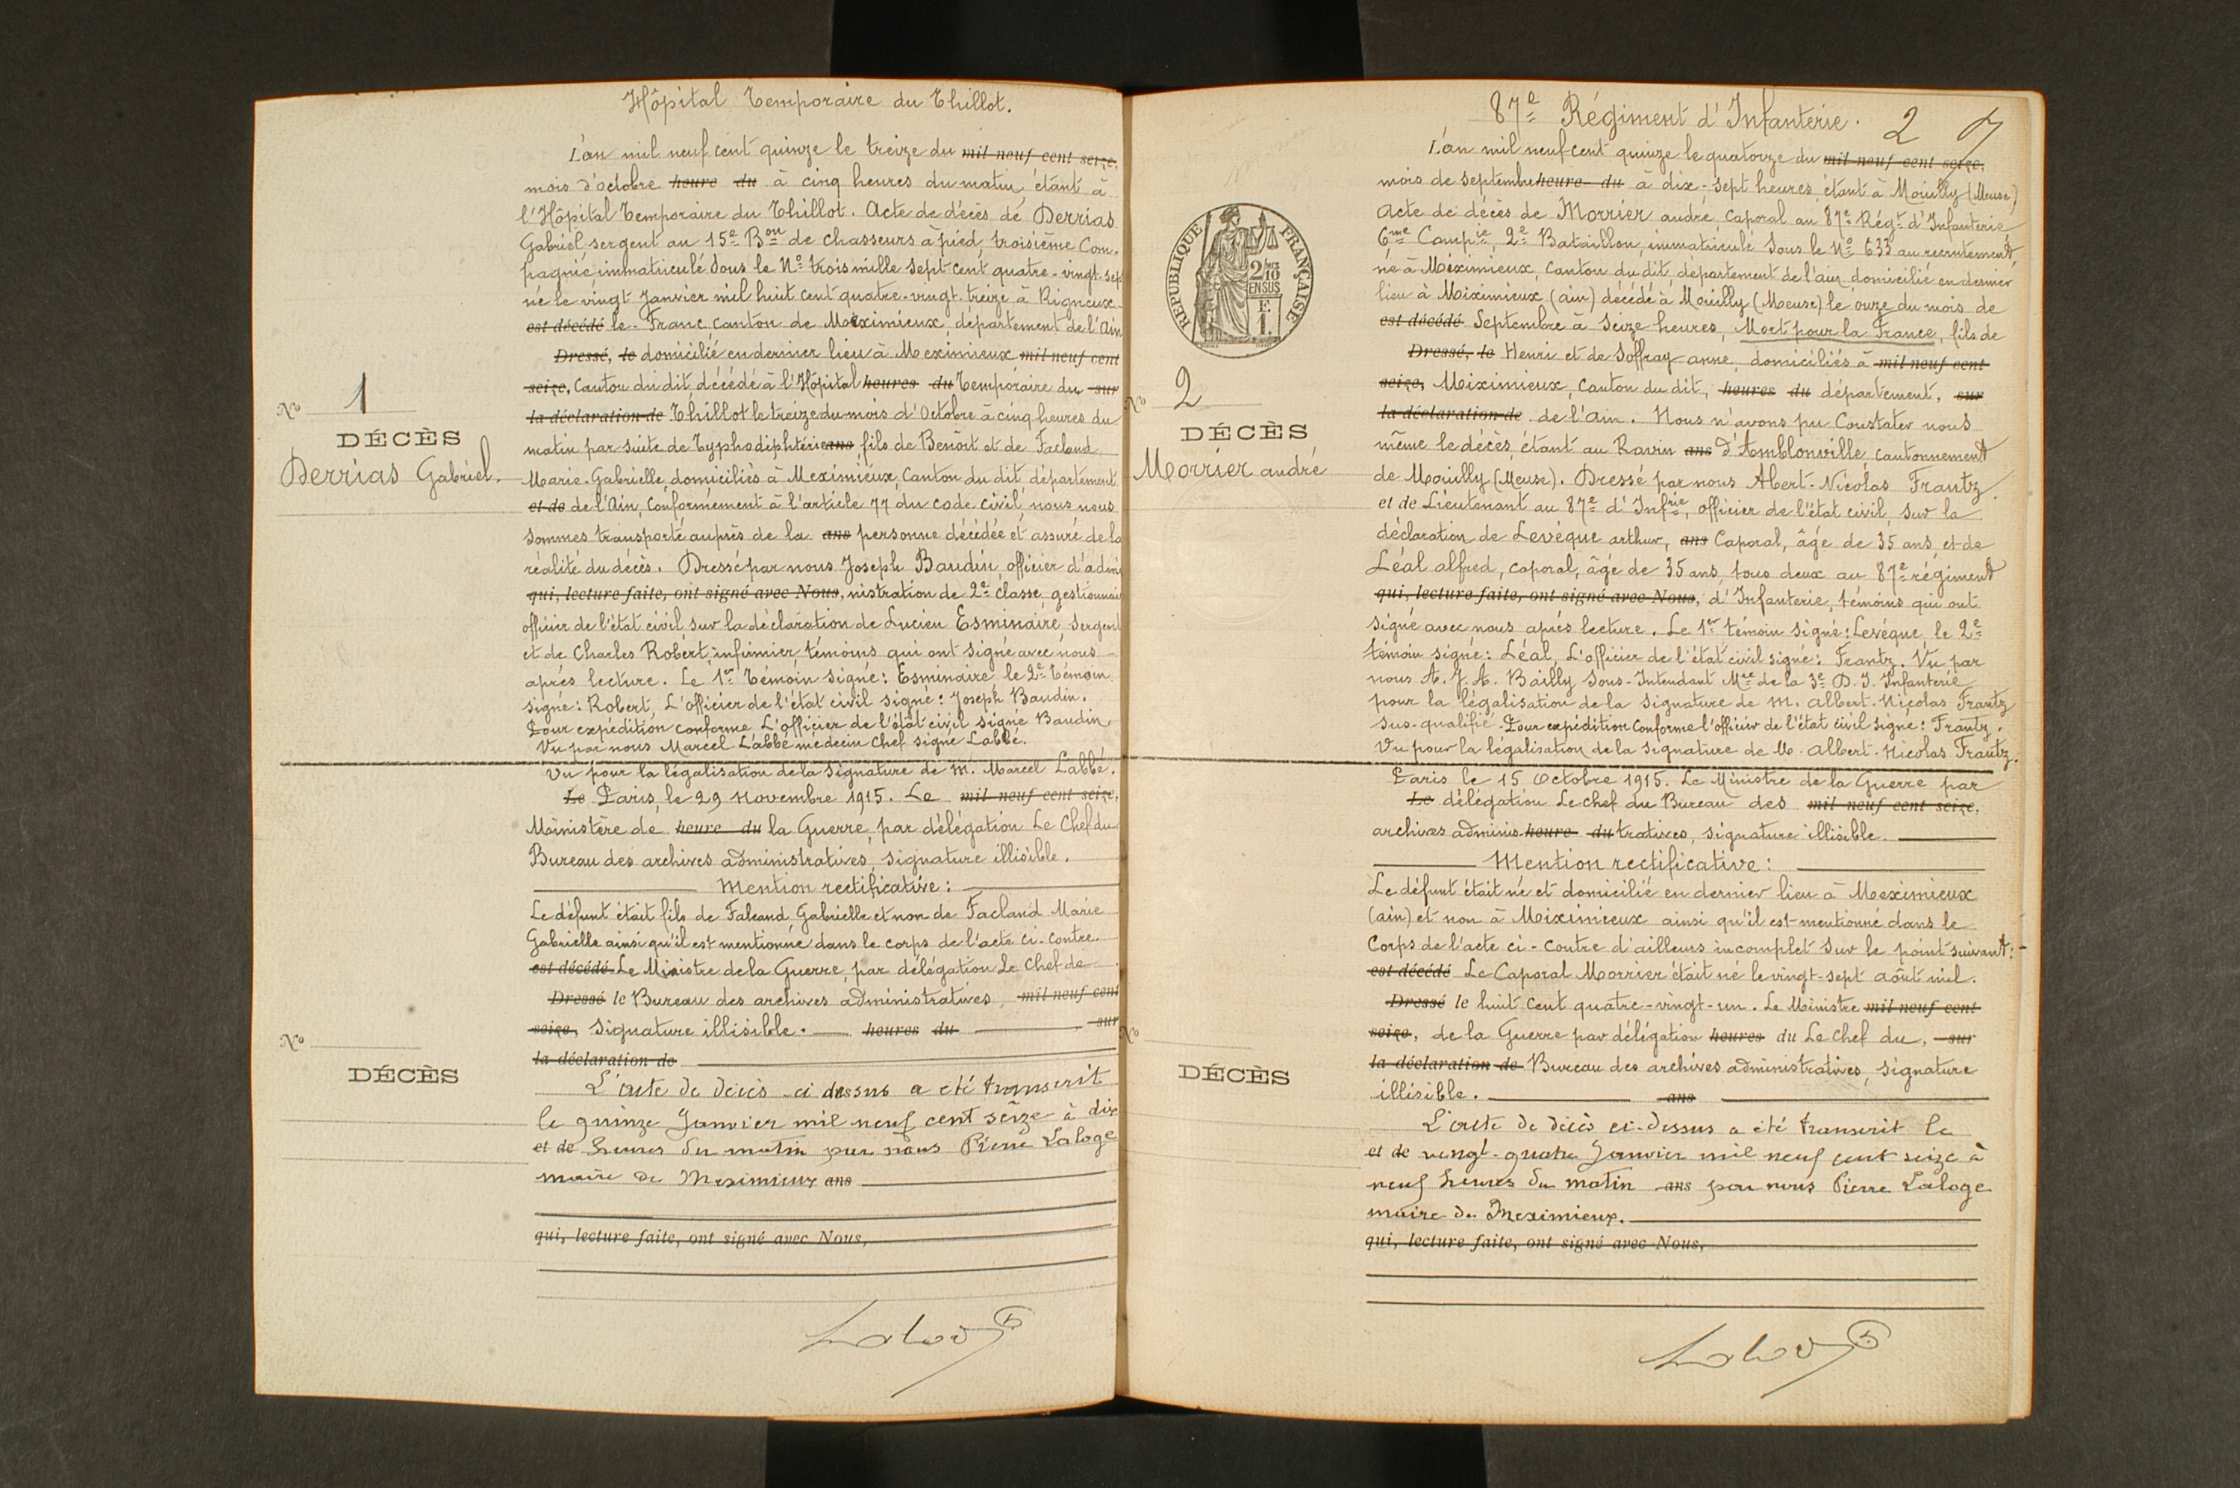 Hôpital Temporaire du Thillot.
L'an mil neuf cent quinze le treize du mil neuf cent seize,
mois d'octobre heure du à cinq heures du matin, étant à
l'Hôpital Temporaire du Thillot. Acte de décès de Derrias
Gabriel sergent au 15e Bon de chasseurs à pied, troisième Com-
pagnie immatriculé sous le No trois mille sept cent quatre-vingt-sept
né le vingt Janvier mil huit cent quatre-vingt-treize à Rigneux-
est décédé le-Franc, canton de Meximieux, département de l'Ain
Dressé, le domicilié en dernier lieu à Meximieux mil neuf cent
seize, Canton du dit décédé à l'Hôpital heures du Temporaire du sur
la déclaration de Thillot le treize du mois d'Octobre à cinq heures du
matin par suite de Typhodiphtérie ans fils de Benoît et de Facland
Marie-Gabrielle, domiciliés à Meximieux, Canton du dit, département
et de de l'Ain, Conformément à l'article 77 du code civil, nous nous
sommes transporté auprès de la ans personne décédée et assuré de la
réalité du décès. Dressé par nous Joseph Baudin, officier d'admi
qui, lecture faite, ont signé avec Nous, nistration de 2e classe, gestionnaire
officier de l'état civil, sur la déclaration de Lucien Esminaire, Sergent
et de Charles Robert, infirmier, témoins qui ont signé avec nous
après lecture. Le 1er Témoin signé: Esminaire le 2e Témoin
signé: Robert, L'officier de l'état civil signé: Joseph Baudin.
Pour expédition conforme L'officier de l'état civil signé Baudin
Vu par nous Marcel Labbé médecin chef signé Labbé.
Vu pour la légalisation de la signature de M. Marcel Labbé.
Le Paris, le 29 Novembre 1915. Le mil neuf cent seize,
Ministère de heure du la Guerre, par délégation Le Chef du
Bureau des archives administratives, signature illisible.
Mention rectificative:
Le défunt était fils de Falcand Gabrielle et non de Facland Marie
Gabrielle ainsi qu'il est mentionné dans le corps de l'acte ci-contre.
est décédé Le Ministre de la Guerre, par délégation Le Chef de
Dressé le Bureau des archives administratives, mil neuf cent
seize, Signature illisible. heures du sur
la déclaration de
L'acte de décès ci dessus a été transcrit
le quinze Janvier mil neuf cent seize à dix
et de heures du matin par nous Pierre Laloge
maire de Meximieux ans
qui, lecture faite, ont signé avec Nous,
No 1
DÉCÈS
Derrias Gabriel.
No
DÉCÈS
87e Régiment d'Infanterie.
2
L'an mil neuf cent quinze le quatorze du mil neuf cent seize,
mois de septembre heure du à dix-sept heures, étant à Mouilly (Meuse)
Acte de décès de Morrier andré, Caporal au 87e Régt d'Infanterie
6me Compie, 2e Bataillon, immatriculé sous le No 633 au recrutement,
né à Miximieux, Canton du dit, département de l'ain domicilié en dernier
lieu à Miximieux (ain) décédé à Mouilly (Meuse) le onze du mois de
est décédé Septembre à Seize heures, Mort pour la France, fils de
Dressé, le Henri et de Soffray anne, domiciliés à mil neuf cent
seize, Miximieux, Canton du dit, heures du département, sur
la déclaration de de l'ain. Nous n'avons pu Constater nous
même le décès, étant au Ravin ans d'Amblonville, cantonnement
de Mouilly (Meuse). Dressé par nous Abert-Nicolas Frantz
et de Lieutenant au 87e d'Infrie, officier de l'état civil, sur la
déclaration de Levéque arthur, ans Caporal, âgé de 35 ans, et de
Léal alfred, caporal, âgé de 35 ans, tous deux au 87e régiment
qui, lecture faite, ont signé avec Nous, d'Infanterie, témoins qui ont
signé avec nous après lecture. Le 1er témoin signé: Levéque, le 2e
témoin signé: Léal, L'officier de l'état civil signé: Frantz. Vu par
nous Bailly Sous-Intendant Mre de la 3e D. I. Infanterie
pour la légalisation de la signature de M. albert-Nicolas Frantz
sus-qualifié. Pour expédition Conforme l'officier de l'état civil signé: Frantz.
Vu pour la légalisation de la signature de M. albert-Nicolas Frantz.
Paris le 15 Octobre 1915. Le Ministre de la Guerre par
Le délégation Le chef du Bureau des mil neuf cent seize,
archives adminis-heure du tratives, signature illisible.
Mention rectificative:
Le défunt était né et domicilié en dernier lieu à Meximieux
(ain) et non à Miximieux ainsi qu'il est mentionné dans le
Corps de l'acte ci-contre d'ailleurs incomplet sur le point suivant:-
est décédé Le Caporal Morrier était né le vingt-sept août mil.
Dressé le huit cent quatre-vingt-un. Le Ministre mil neuf cent
seize, de la Guerre par délégation heures du Le chef du, sur
la déclaration de Bureau des archives administratives, signature
illisible. ans
L'acte de décès ci-dessus a été transcrit le
et de vingt-quatre Janvier mil neuf cent seize à
neuf heures du matin ans par nous Pierre Laloge
maire de Meximieux.
qui, lecture faite, ont signé avec Nous,
RÉPUBLIQUE FRANÇAISE
2/10 EN SUS
F.
1.
No 2
DÉCÈS
Morrier andré
No
DÉCÈS